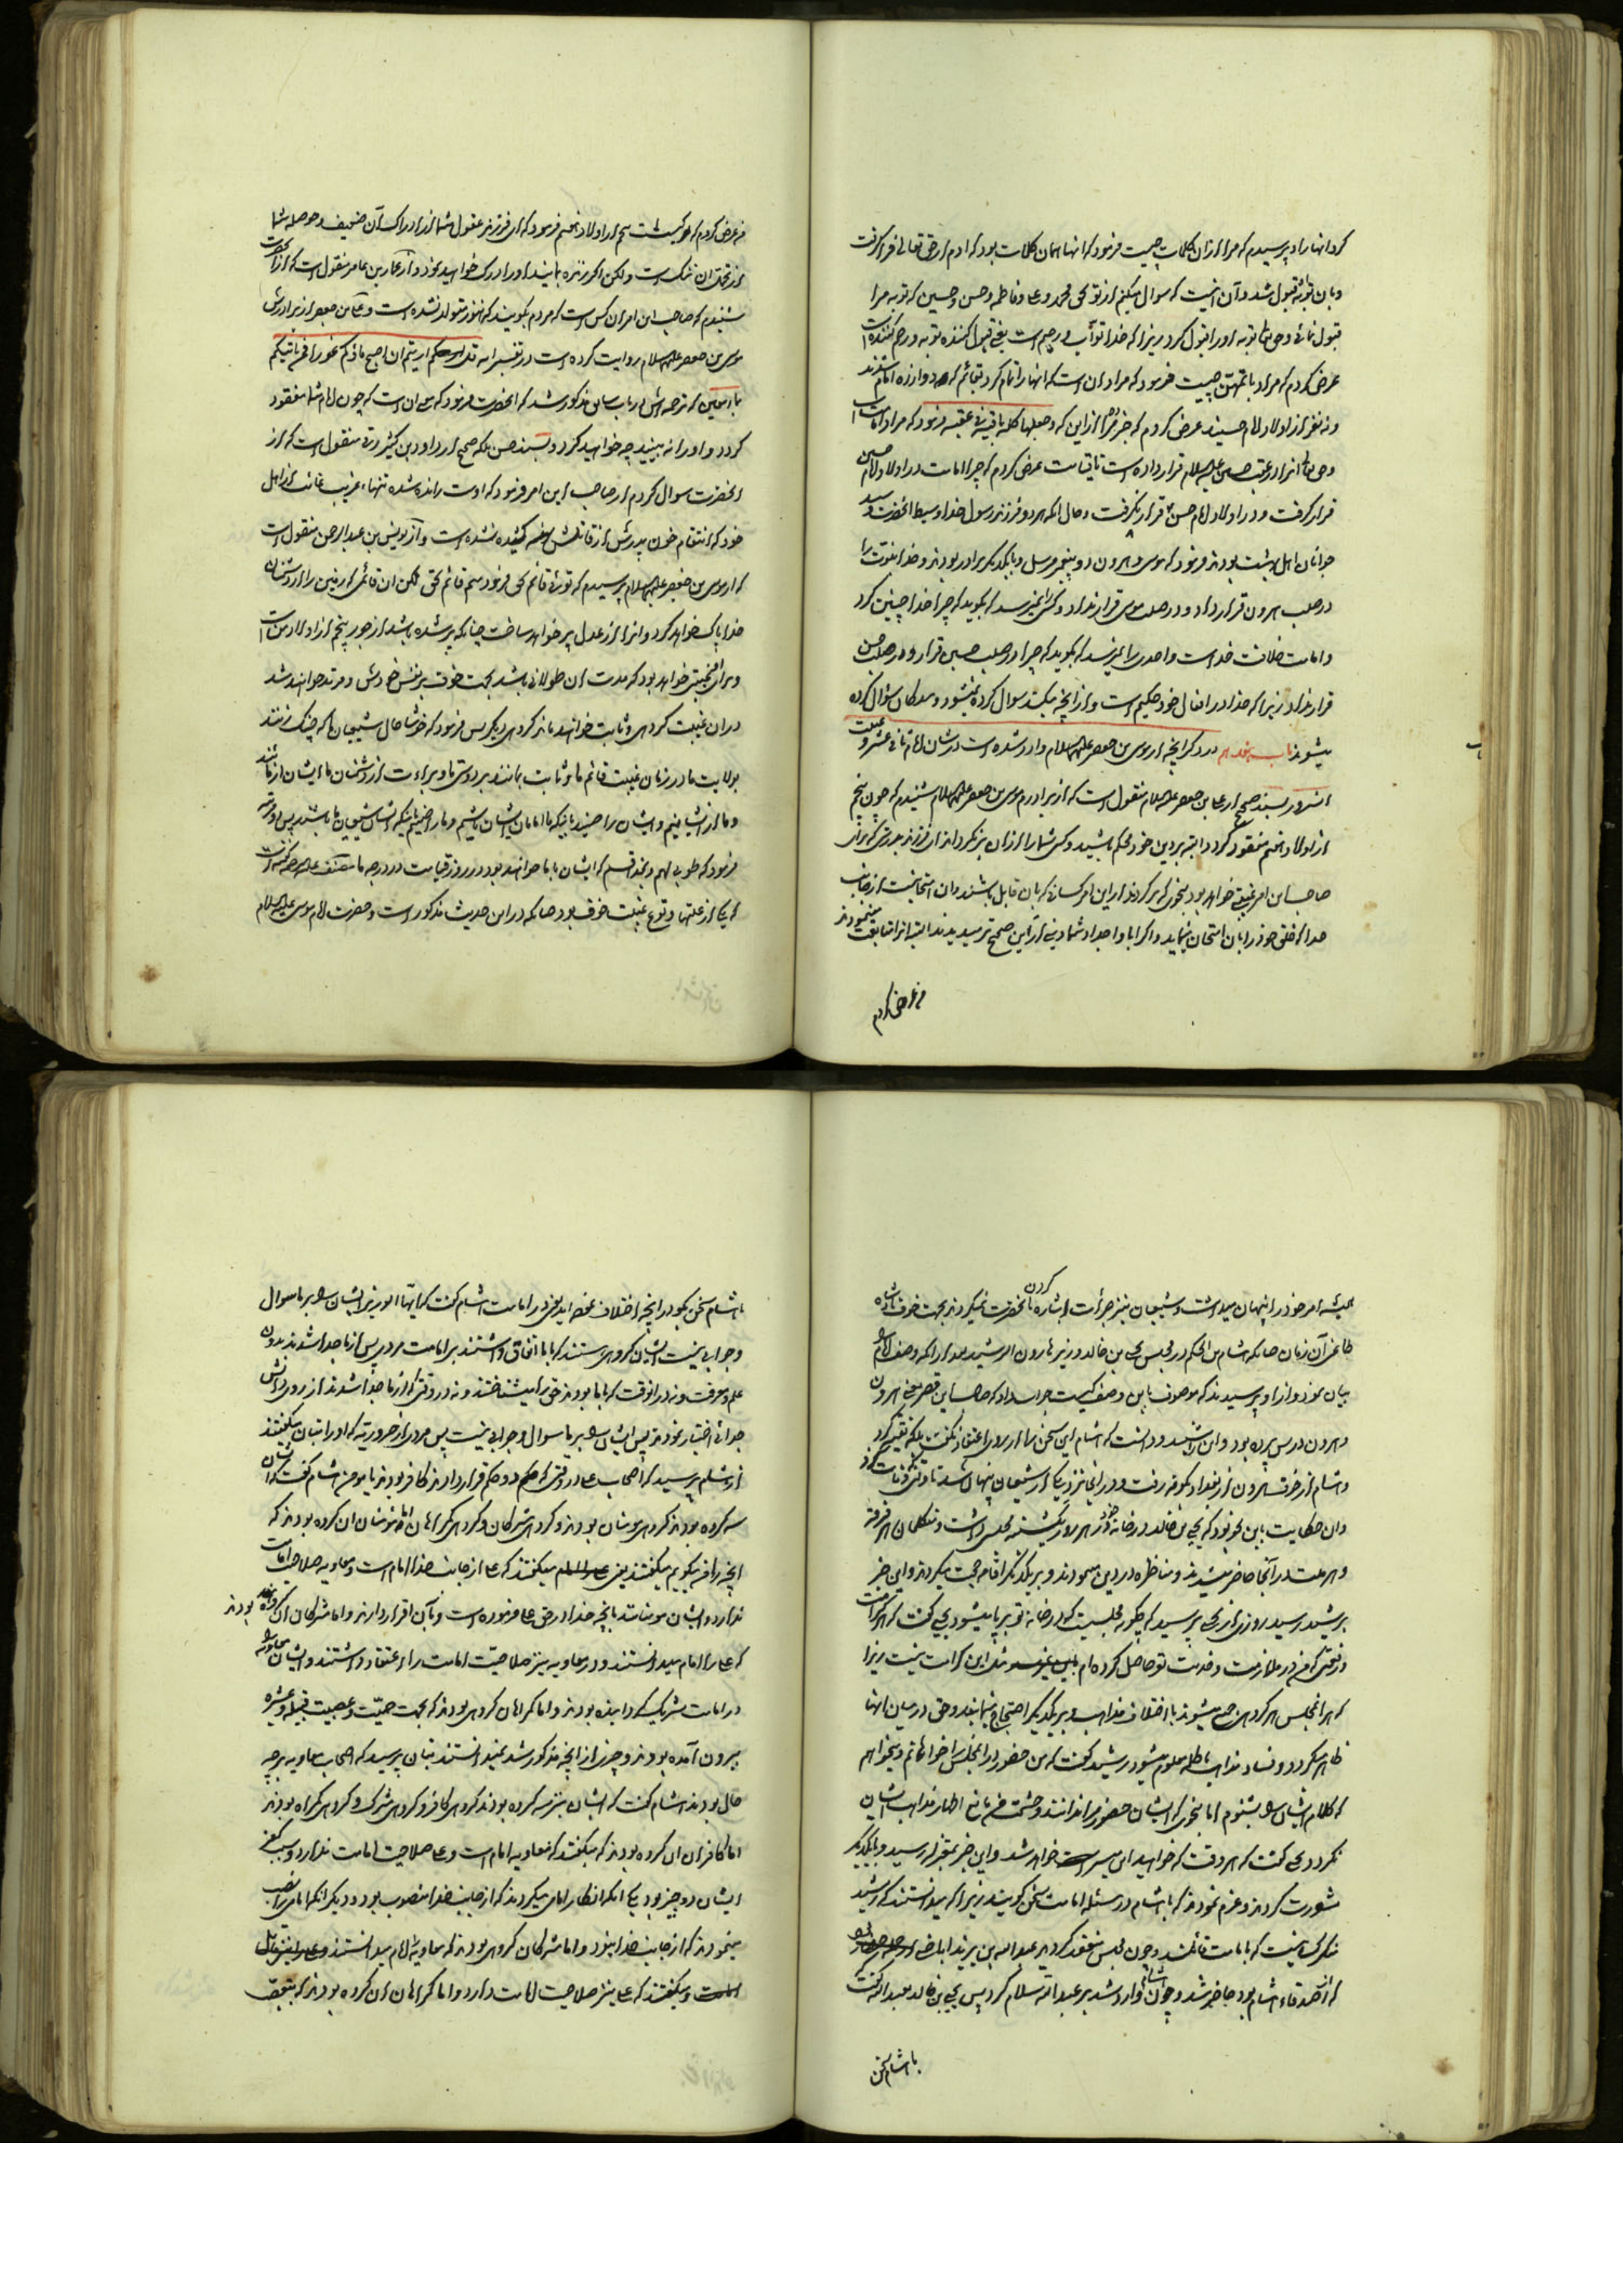 کرد انها را و پرسیدم که مراد ازان کلمات چیست فرمود که انها همان کلمات بود که ادم از حق تعالی فرا گرفت
و بان توبه‌اش قبول شد و آن اینست که سوال میکنم از تو بحق محمد و علی و فاطمه و حسن و حسین که توبه مرا
قبول نمائی و حق تعالی توبه او را قبول کرد زیرا که خدا توّاب و رحیم است یعنی قبول کننده توبه و رحم کننده است
عرض کردم که مراد باتمهنّ چیست فرمود که مراد ان است که انها را تمام کرد تا قائم که دوازده امامند
و نه نفر از اولاد امام حسینند عرض کردم که خبر ده مرا از این که وجعلها کلمة باقیة فی عقبه فرمود که مراد امامت است
و حق تعالی انرا در عقب حسین علیه السلام قرار داده است تا قیامت عرض کردم که چرا امامت در اولاد امام حسین
قرار گرفت و در اولاد امام حسن قرار نگرفت و حال انکه هر دو فرزند رسول خدا و سبط انحضرت و سید
جوانان اهل بهشت بودند فرمود که موسی و هرون دو پیغمبر مرسل و با یکدیگر برادر بودند و خدا نبوّت را
در صلب هرون قرار داد و در صلب موسی قرار نداد و کسی را نمیرسد که بگوید که چرا خدا چنین کرد
و امامت خلافت خداست و احدی را نمیرسد که بگوید که چرا در صلب حسین قرار داد و در صلب حسن
قرار نداد زیرا که خدا در افعال خود حکیم است و از انچه میکند سوال کرده نمیشود و بندگان سؤال کرده
میشوند باب در ذکر انچه از موسی بن جعفر علیهما السلام وارد شده است در شان امام ثانی عشر و غیبت
انسرور بسند صحیح از علی بن جعفر علیه السلام منقول است که از برادرم موسی بن جعفر علیهما السلام شنیدم که چون پنجم
از اولاد هفتم مفقود گردد البته بر دین خود محکم باشید و کسی شما را ازان بر نگرداند ای فرزند بدرستی که برای
صاحب این امر غیبتی خواهد بود بنحوی که بر گردند از این امر کسانی که بان قایل باشند و ان امتحانیست از جانب
خدا که خلق خود را بان امتحان مینماید و اگر ابا و اجداد شما دینی از این صحیح‌تر میدیدند البته انرا متابعت مینمودند
من عرض کردم
من عرض کردم که کیست پنجم از اولاد هفتم فرمود که ای فرزند عقول شما از ادراک آن ضعیف و حوصله شما
از تحمل ان تنک است و لکن اگر زنده بمانید او را درک خواهید نمود و از علی بن عامر منقول است که از انحضرت
شنیدم که صاحب این امر ان کس است که مردم بگویند که هنوز متولد نشده است و علی بن جعفر از برادرش
موسی بن جعفر علیهما السلام روایت کرده است در تفسیر ایه قل ارایتم ان اصبح ماؤکم غورا فمن یاتیکم
بماء معین که ترجمه‌اش در باب سابق مذکور شد که انحضرت فرمود که معنی ان است که چون امام شما مفقود
گردد و او را نه بینید چه خواهید کرد و بسند حسن بلکه صحیح از داود بن کثیر رقی منقول است که از
انحضرت سوال کردم از صاحب این امر فرمود که اوست رانده شده تنهاء غریب غائب از اهل
خود که انتقام خون پدرش از قاتلش کشیده نشده است و از یونس بن عبدالرحمن منقول است
که از موسی بن جعفر علیهما السلام پرسیدم که توئی قائم بحق فرمود منم قائم بحق لکن ان قائمی که زمین را از دشمنان
خدا پاک خواهد کرد و انرا از عدل پر خواهد ساخت چنانکه پر شده باشد از جور پنجم از اولاد من است
و برای او غیبتی خواهد بود که مدت ان طولانی باشد بجهت خوف بر نفس خودش و مرتد خواهند شد
در ان غیبت گروهی و ثابت خواهند ماند گروهی دیگر پس فرمود که خوشا حال شیعیان ما که چنک زنند
بولایت ما در زمان غیبت قائم ما و ثابت بمانند بر دوستی ما و براءت از دشمنان ما ایشان از ما باشند
و ما از ایشانیم و ایشان راضیند باینکه ما امامان ایشان باشیم و ما راضی هستیم باینکه ایشان شیعیان ما باشند پس دو مرتبه
فرمود که طوبی لهم و بخدا قسم که ایشان با ما خواهند بود در روز قیامت در درجه ما مصنف علیه الرحمه گفته است
که یکی از علتهای وقوع غیبت خوف بود چنانکه در این حدیث مذکور است و حضرت امام موسی علیه السلام
همیشه امر خود را پنهان میداشت و شیعیان نیز جرأت اشاره کردن بانحضرت نمیکردند بجهت خوف پادشاه
طاغی آن زمان چنانکه هشام بن الحکم در مجلس یحیی بن خالد وزیر هارون الرشید بعد از انکه وصف امام را
بیان نمود و از او پرسیدند که موصوف باین وصف کیست جواب داد که صاحب این قصر یعنی هرون
و هرون در پس پرده بود و این را شنید و دانست که هشام این سخن را از روی اعتقاد نگفت بلکه تقیه کرد
و هشام از خوف هرون از بغداد بکوفه رفت و در انجا نزد یکی از شیعیان پنهان شد تا وقتی که وفات کرد
و ان حکایت باین نحو بود که یحیی بن خالد در خانه خود هر روز یکشنبه مجلسی داشت و متکلمان هر فرقه
و هر ملت در آنجا حاضر میشدند و مناظره در دین مینمودند و بر یکدیگر اقامه حجت میکردند و این خبر
برشید رسید روزی از یحیی پرسید که چگونه مجلسیست که در خانه تو بر پا میشود یحیی گفت که هر کرامت
و رفعتی که من در ملازمت و خدمت تو حاصل کرده‌ام مثل این کرامت نیست زیرا
که در انمجلس هر گروهی جمع میشوند با اختلاف مذاهب و بر یکدیگر احتجاج مینمایند و حق در میان انها
ظاهر میگردد و فساد مذاهب باطله معلوم میشود رشید گفت که من حضور در انمجلس را خواهانم و میخواهم
که کلام ایشان را بشنوم اما بنحوی که ایشان حضور مرا ندانند و حشمت من مانع اظهار مذاهب ایشان
نگردد یحیی گفت که هر وقت که خواهید این میسر خواهد شد و این خبر بمعتزله رسید و با یکدیگر
مشورت کردند و عزم نمودند که با هشام در مسئله امامت سخن گویند زیرا که میدانستند که رشید
منکر کسانیست که بامامت قائلند و چون مجلس منعقد گردید عبدالله بن یزید اباضی
که از صدقاء هشام بود حاضر شد و چون هشام وارد شد بر عبدالله سلام کرد پس یحیی بن خالد بعبدالله گفت
با هشام سخن
با هشام سخن بگو در انچه اختلاف نموده‌اید یعنی در امامت هشام گفت که ایّها الوزیر ایشان را بر ما سوال
و جوابی نیست ایشان گروهی هستند که با ما اتفاق داشتند بر امامت مردی پس از ما جدا شدند بدون
علم و معرفت و نه در انوقت که با ما بودند حق را میشناختند و نه در وقتی که از ما جدا شدند از روی دانش
جدائی اختیار نمودند پس ایشان را بر ما سوال و جوابی نیست پس مردی از حروریّه که او را بنان میگفتند
از هشام پرسید که اصحاب علی در وقتی که دو حکم قرار دادند کافر بودند یا مومن هشام گفت که ایشان
سه گروه بودند گروهی مومنان بودند و گروهی مشرکان و گروهی گمراهان اما مومنان ان گروه بودند که
انچه را من میگویم میگفتند یعنی میگفتند که علی از جانب خدا امام است و معاویه صلاحیت امامت
ندارد و ایشان مومنانند بانچه خدا در حق علی فرموده است و بآن اقرار دارند و اما مشرکان ان گروه بودند
که علی را امام میدانستند و در معاویه نیز صلاحیت امامت را اعتقاد داشتند و ایشان معاویه را
در امامت شریک گردانیده بودند و اما گمراهان گروهی بودند که بجهت حمیّت و عصبیت قبیله و عشیره
بیرون آمده بودند و چیزی از انچه مذکور شد نمیدانستند بنان پرسید که اصحاب معاویه بر چه
حال بودند هشام گفت که ایشان نیز سه گروه بودند گروهی کافر و گروهی مشرک و گروهی گمراه بودند
اما کافران ان گروه بودند که میگفتند که معاویه امام است و علی صلاحیت امامت ندارد و سبب کفر
ایشان دو چیز بود یکی انکه انکار امامی میکردند که از جانب خدا منصوب بود و دیگر انکه امامی را نصب
مینمودند که از جانب خدا نبود و اما مشرکان گروهی بودند که معاویه را امام میدانستند
و میگفتند که علی نیز صلاحیت امامت دارد و اما گمراهان ان گروه بودند که بتعصّب